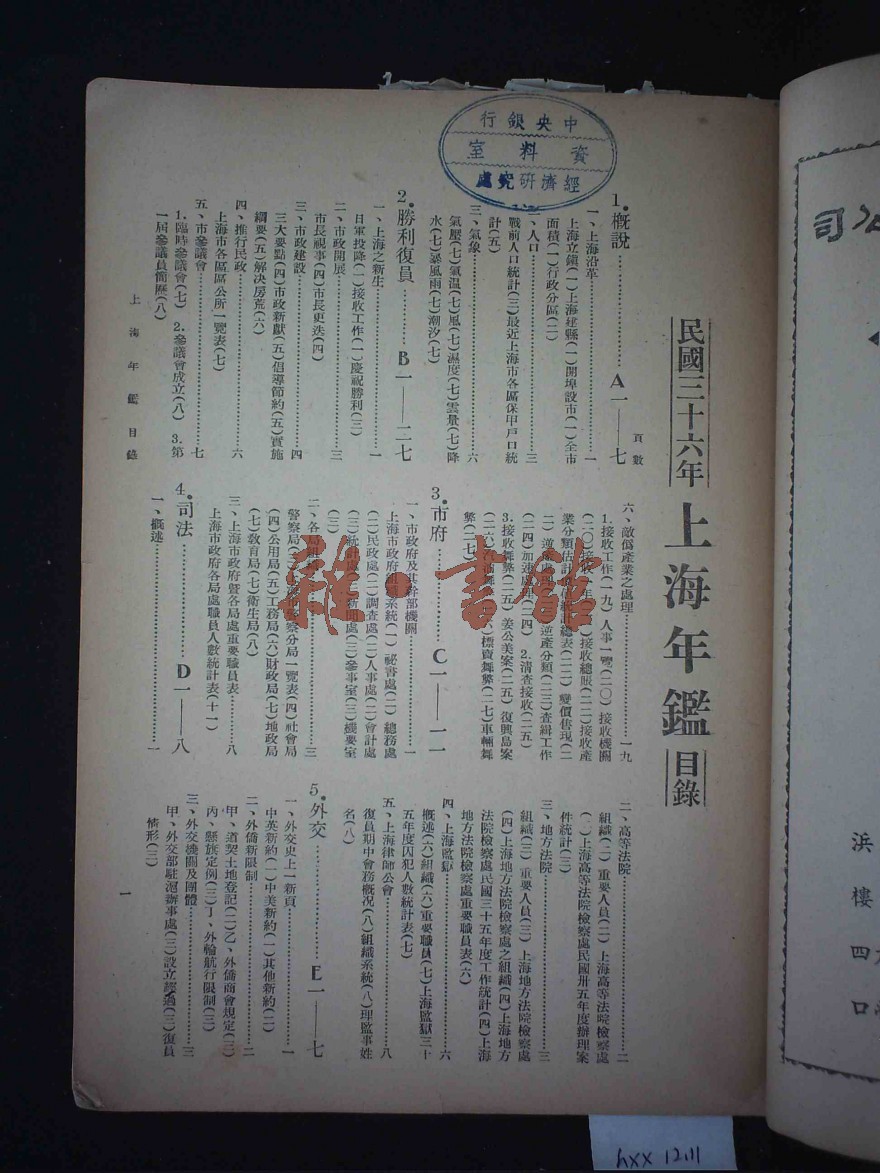 民國三十六年
上海年鑑
目錄
中央銀行
資料室
經濟研究處
頁數
1.概說……A一——七
一、上海沿革……一
上海立鎮(一)上海建縣(一)開埠設市(一)全市
面積(一)行政分區(二)
二、人口……三
戰前人口統計(三)最近上海市各區保甲戶口統
計(五)
三、氣象……六
氣壓(七)氣温(七)風(七)濕度(七)雲量(七)降
水(七)暴風雨(七)潮汐(七)
2.勝利復員……B一——二七
一、上海之新生……一
日軍投降(一)接收工作(一)慶祝勝利(三)
二、市政開展……三
市長視事(四)市長更迭(四)
三、市政建設……四
三大要點(四)市政新獻(五)倡導節約(五)實施
綱要(五)解決房荒(六)
四、推行民政……六
上海市各區區公所一覽表(七)
五、市參議會……七
1.臨時參議會(七) 2.參議會成立(八) 3.第
一屆參議員簡歷(八)
六、敵僞產業之處理……一九
1.接收工作(一九)人事一覽(二〇)接收機關
(二〇)接收 年 )接收總賬(二一)接收產
業分類估計 總表(二二)變價售現(二
二)逆產處理 逆產分類(二三)查緝工作
(二四)加速處理(二四) 2.清查接收(二五)
3.接收舞弊(二五)姜公美案(二五)復興島案
(二六) 舞弊 六)標賣舞弊(二七)車輛舞
弊(二七)
3.市府……C一——一一
一、市政府及其幹部機關……一
上海市政府組織系統(一)祕書處(二)總務處
(二)民政處(二)調查處(二)人事處(二)會計處
(三)統計處(三)新聞處(三)參事室(三)機要室
(三)
二、各局組織……三
警察局(三) 警察分局一覽表(四)社會局
(四)公用局(五)工務局(六)財政局(七)地政局
(七)教育局(七)衛生局(八)
三、上海市政府暨各局處重要職員表……八
上海市政府各局處職員人數統計表(十一)
4.司法……D一——八
一、概述……一
二、高等法院……二
組織(二)重要人員(二)上海高等法院檢察處
(二)上海高等法院檢察處民國卅五年度辦理案
件統計(三)
三、地方法院……三
組織(三)重要人員(三)上海地方法院檢察處
(四)上海地方法院檢察處之組織(四)上海地方
法院檢察處民國三十五年度工作統計(四)上海
地方法院檢察處重要職員表(六)
四、上海監獄……六
概述(六)組織(六)重要職員(七)上海監獄三十
五年度囚犯人數統計表(七)
五、上海律師公會……八
復員期中會務概况(八)組織系統(八)理監事姓
名(八)
5.外交……E一——七
一、外交史上一新頁……一
中英新約(一)中美新約(一)其他新約(二)
二、外僑新限制……二
甲、道契土地登記(二)乙、外僑商會規定(三)
丙、懸旗定例(三)丁、外輪航行限制(三)
三、外交機關及團體……三
甲、外交部駐滬辦事處(三)設立經過(三)復員
情形(三)
上海年鑑目錄
一
雜·書館
公司
浜
樓
四
口
hxx 1211